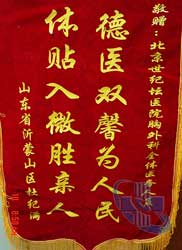 敬赠：北京世纪坛医院胸外科全体医务人员
德医双馨为人民
体贴入微胜亲人
山东省沂蒙山区杜纪满